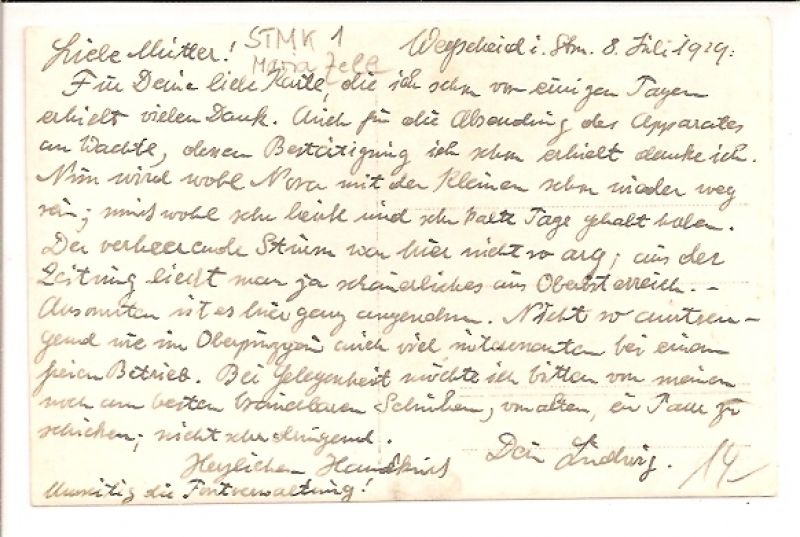 Liebe Mutter! STMK 1 Wegscheid i. Stm. 8. Juli 1929.
Maria Zell
Für Deine liebe Karte, die ich schon vor einigen Tagen
erhielt vielen Dank. Auch für die Absendung des Apparates
an Wachtl, dessen Bestätigung ich schon erhielt danke ich.
Nun wird wohl Nora mit der Kleinen schon wieder weg
sein; muss wohl sehr und sehr kalte Tage gehabt haben.
Der verheerende Sturm war hier nicht so arg; aus der
Zeitung liest man ja schauerliches aus Oberösterreich. –
Ansonsten ist es hier ganz angenehm. Nicht so anstren-
gend wie im Oberpinzgau auch viel interessanter bei einem
freien Betrieb. Bei Gelegenheit möchte ich bitten von meinen
noch am besten brauchbaren Schuhen, von alten, ein Paar zu
schicken; nicht sehr dringend.
Herzlichen Handkuss Dein Ludwig. 14
Umseitig die Forstverwaltung!